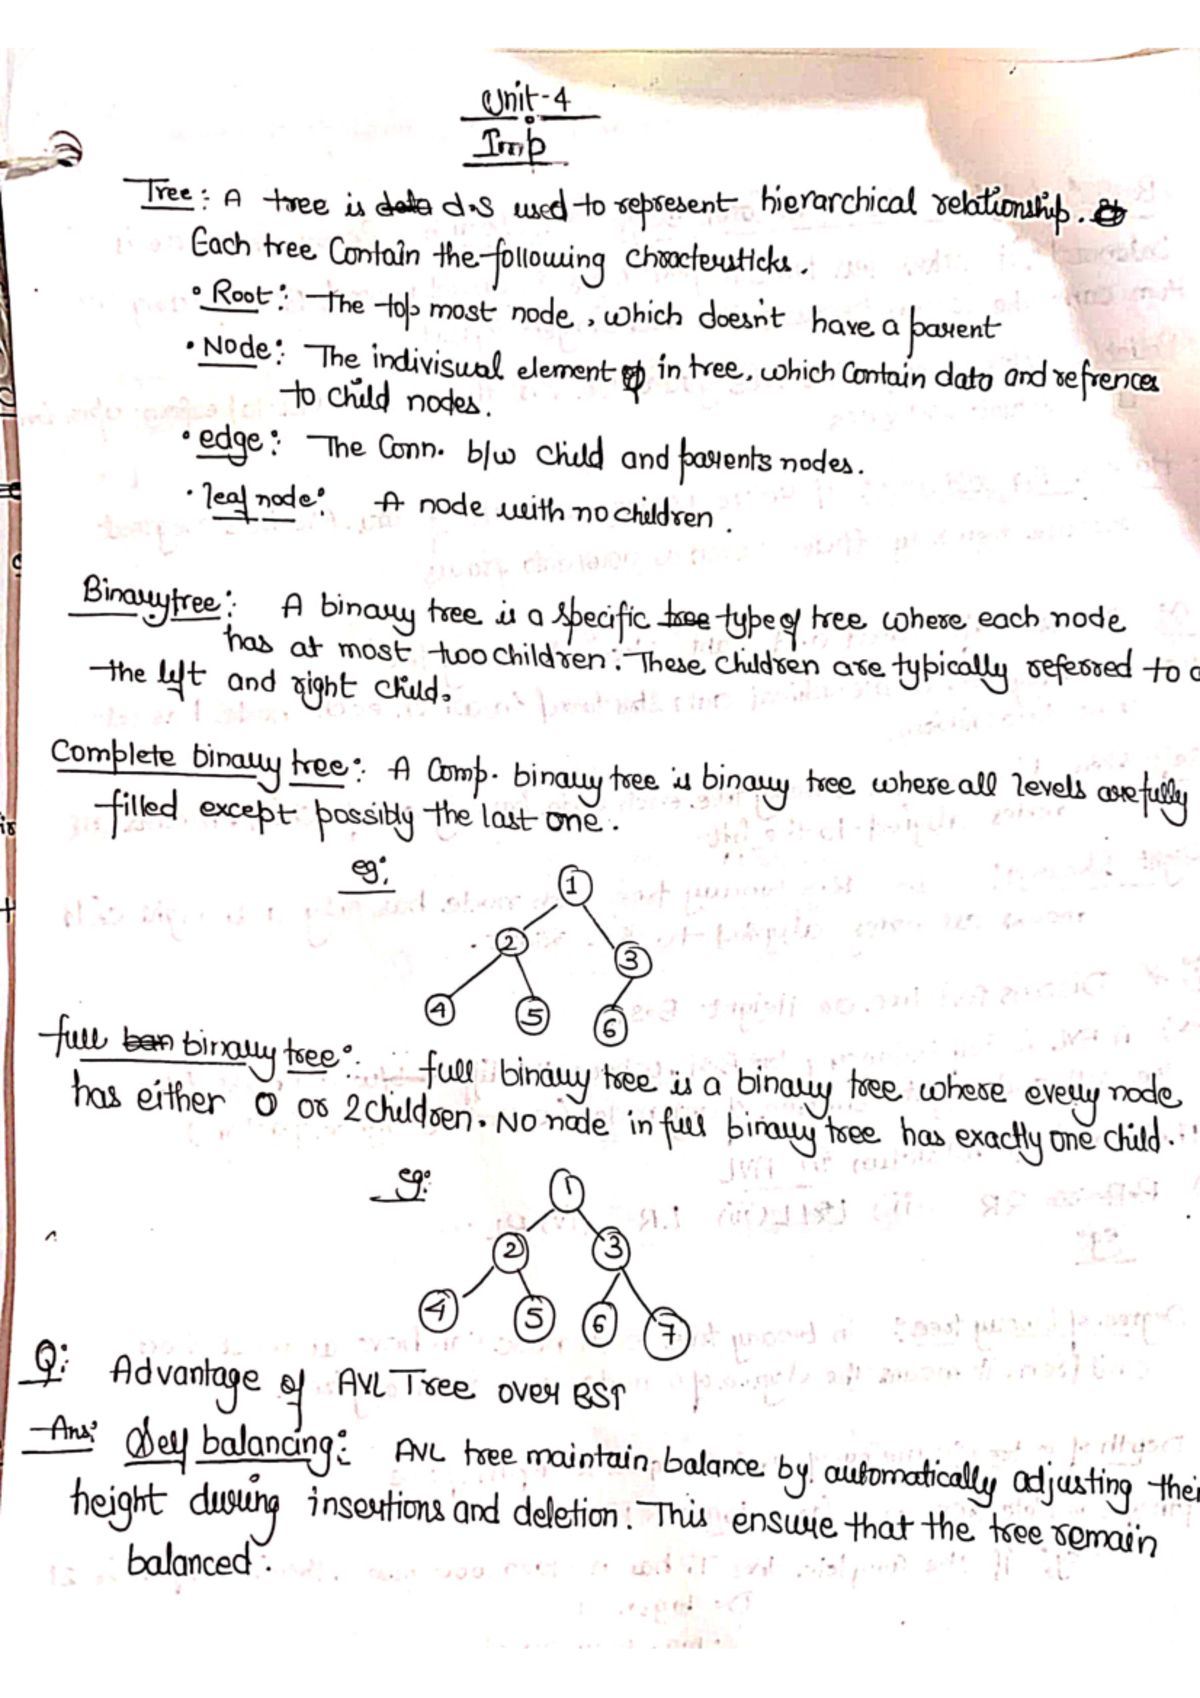 Unit-4
Imp
Tree: A tree is data d.s used to represent hierarchical relationship.
Each tree Contain the following charactersticks.
• Root: The top most node, which doesn't have a parent
• Node: The indivisual element of in tree, which Contain data and refrences
to child nodes.
• edge: The Conn. b/w child and parents nodes.
• leaf node: A node with no children.
Binary tree: A binary tree is a specific tree type of tree where each node
has at most two children. These children are typically referred to a
the left and right child.
Complete binary tree: A Comp. binary tree is binary tree where all levels are fully
filled except possibly the last one.
eg:
1
2
3
4 5 6
full ban binary tree: full binary tree is a binary tree where every node
has either 0 or 2 children. No node in full binary tree has exactly one child.
eg:
1
2 3
4 5 6 7
Q: Advantage of AVL Tree over BST
Ans: Self balancing: AVL tree maintain balance by automatically adjusting thei
height during insertions and deletion. This ensure that the tree remain
balanced.